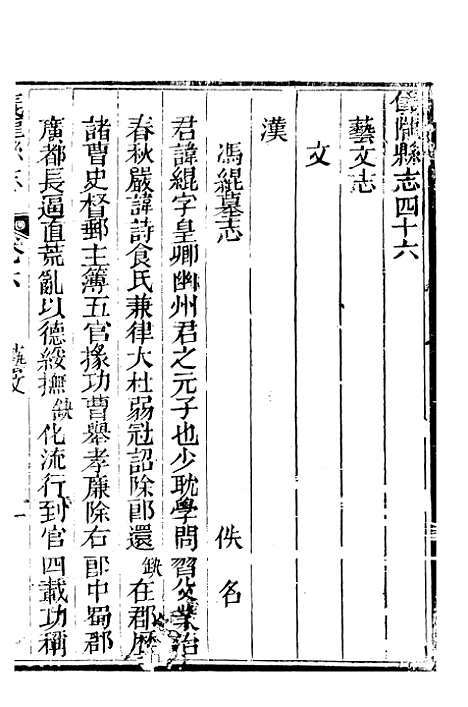 儀隴縣志四十六
藝文志
文
漢
馮緄墓志 佚名
君諱緄字皇卿幽州君之元子也少耽學問習父業治
春秋嚴諱詩食氏兼律大杜弱冠詔除郎還缺在郡歷
諸曹史督郵主簿五官掾功曹舉孝廉除右郎中蜀郡
廣都長逼直荒亂以德綏撫缺化流行到官四載功稱
卷六 藝文 一